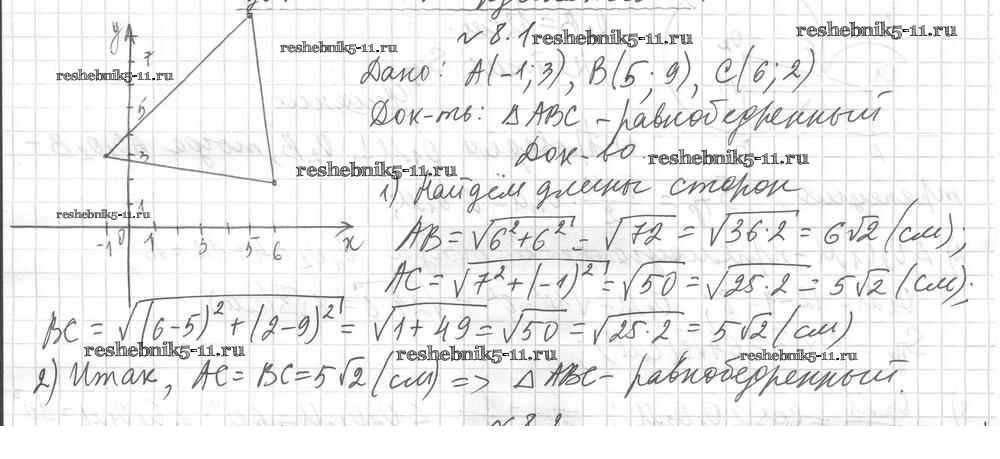 № 8.1 reshebnik5-11.ru reshebnik5-11.ru
y 7 reshebnik5-11.ru
reshebnik5-11.ru Дано: A(-1; 3), B(5; 9), C(6; 2)
5 Док-ть: △ABC - равнобедренный
3 Док-во reshebnik5-11.ru
reshebnik5-11.ru
1) Найдём длины сторон
reshebnik5-11.ru 1
-1 0 1 3 5 6 x
AB = √6²+6² = √72 = √36·2 = 6√2 (см);
AC = √7²+(-1)² = √50 = √25·2 = 5√2 (см);
BC = √(6-5)²+(2-9)² = √1+49 = √50 = √25·2 = 5√2 (см)
reshebnik5-11.ru reshebnik5-11.ru reshebnik5-11.ru
2) Итак, AC = BC = 5√2 (см) => △ABC - равнобедренный.